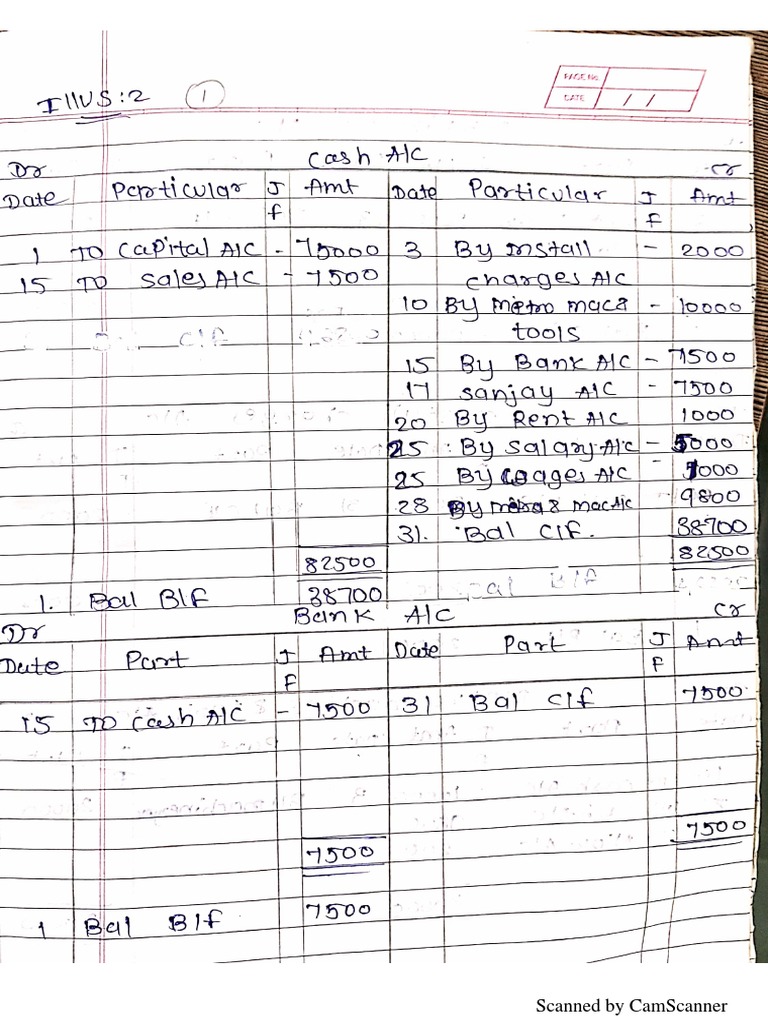 Illus:2 1
PAGE No.
DATE / /
Cash A/C
Dr Cr
Date Particular J Amt Date Particular J Amt
f F
1 TO Capital A/C - 75000 3 By Install - 2000
15 TO Sales A/C - 7500 charges A/C
10 By Metro mac& - 10000
tools
15 By Bank A/C - 7500
17 Sanjay A/C - 7500
20 By Rent A/C 1000
25 : By Salary A/C - 5000
25 By Wages A/C - 1000
28 By mac A/C 9800
31. Bal C/F. 38700
82500 82500
1. Bal B/F 38700
Bank A/C
Dr Cr
Date Part J Amt Date Part J Amt
F F
15 TO Cash A/C - 7500 31 Bal C/f 7500
7500 7500
1 Bal B/f 7500
Scanned by CamScanner